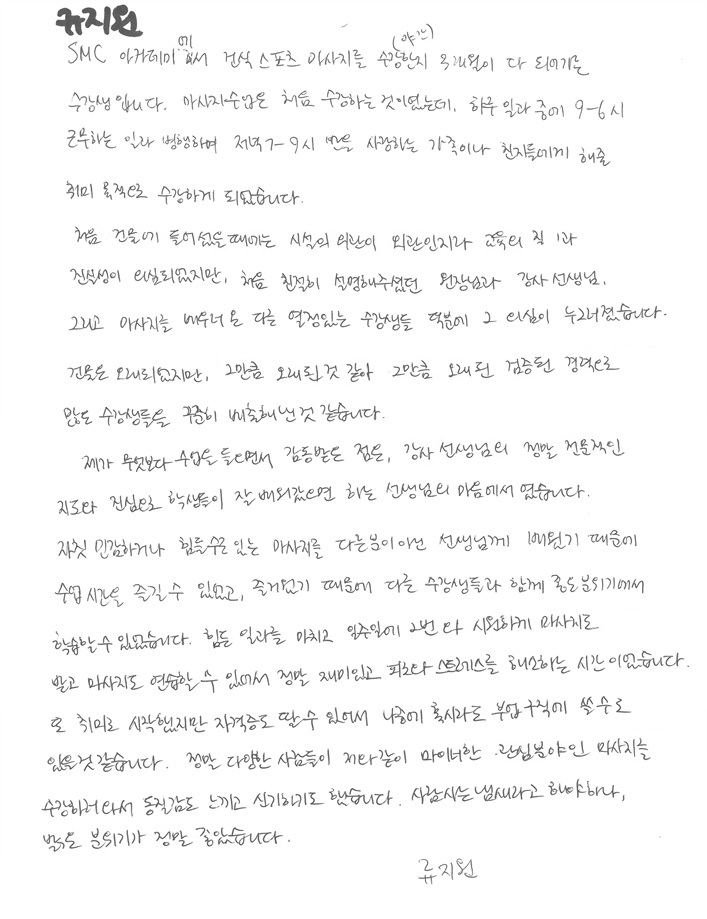 류지원
SMC 아카데미에서 건식 스포츠 마사지를 (야간) 수강한지 3개월이 다 되어가는
수강생입니다. 마사지수업은 처음 수강하는 것이었는데, 하루 일과 중에 9-6시
근무하는 일과 병행하며 저녁 7-9시 반을 사랑하는 가족이나 친지들에게 해줄
취미 목적으로 수강하게 되었습니다.
처음 건물에 들어섰을때에는 시설의 외관이 외관인지라 교육의 질과
진실성이 의심되었지만, 처음 친절히 설명해주셨던 원장님과 강사 선생님,
그리고 마사지를 배우러 온 다른 열정있는 수강생들 덕분에 그 의심이 누그러졌습니다.
건물은 오래되었지만, 그만큼 오래된것 같아 그만큼 오래된 검증된 경력으로
많은 수강생들을 꾸준히 배출해낸것 같습니다.
제가 무엇보다 수업을 들으면서 감동받은 점은, 강사 선생님의 정말 전문적인
지도와 진심으로 학생들이 잘 배워갔으면 하는 선생님의 마음에서 였습니다.
자칫 민감하거나 힘들수도 있는 마사지를 다른분이 아닌 선생님께 배웠기 때문에
수업 시간을 즐길 수 있었고, 즐거웠기 때문에 다른 수강생들과 함께 좋은 분위기에서
학습할 수 있었습니다. 힘든 일과를 마치고 일주일에 2번 다 시원하게 마사지도
받고 마사지도 연습할 수 있어서 정말 재미있고 피로와 스트레스를 해소하는 시간이었습니다.
또 취미로 시작했지만 자격증도 딸 수 있어서 나중에 혹시라도 부업 구직에 쓸 수도
있을것 같습니다. 정말 다양한 사람들이 저와 같이 마이너한 관심분야인 마사지를
수강하러 와서 동질감도 느끼고 신기하기도 했습니다. 사람사는 냄새라고 해야하나,
밝은 분위기가 정말 좋았습니다.
류지원